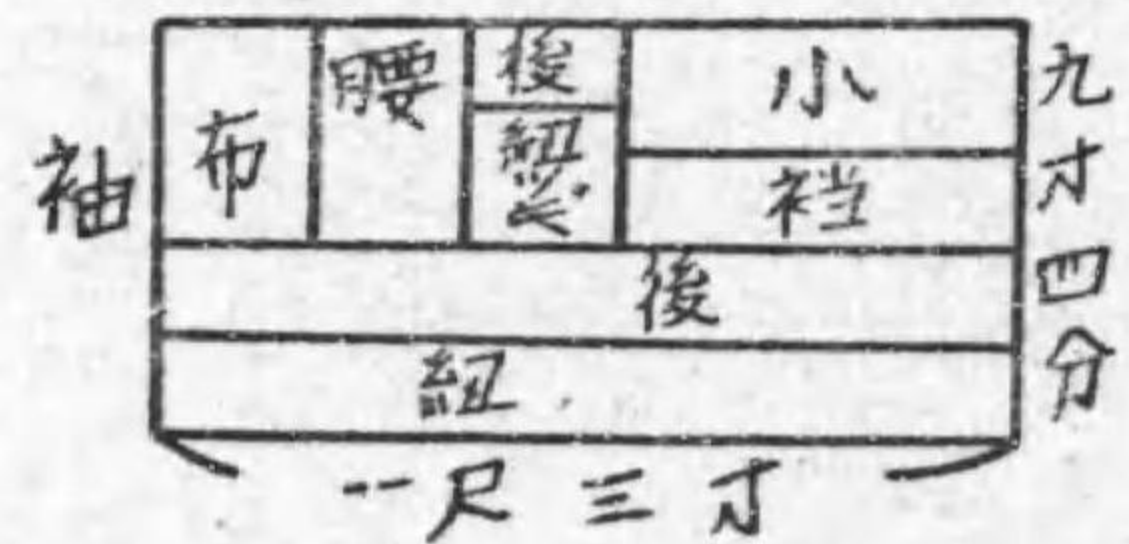 袖布
腰
後紐裏
小裆
後
紐
九寸四分
一尺三寸